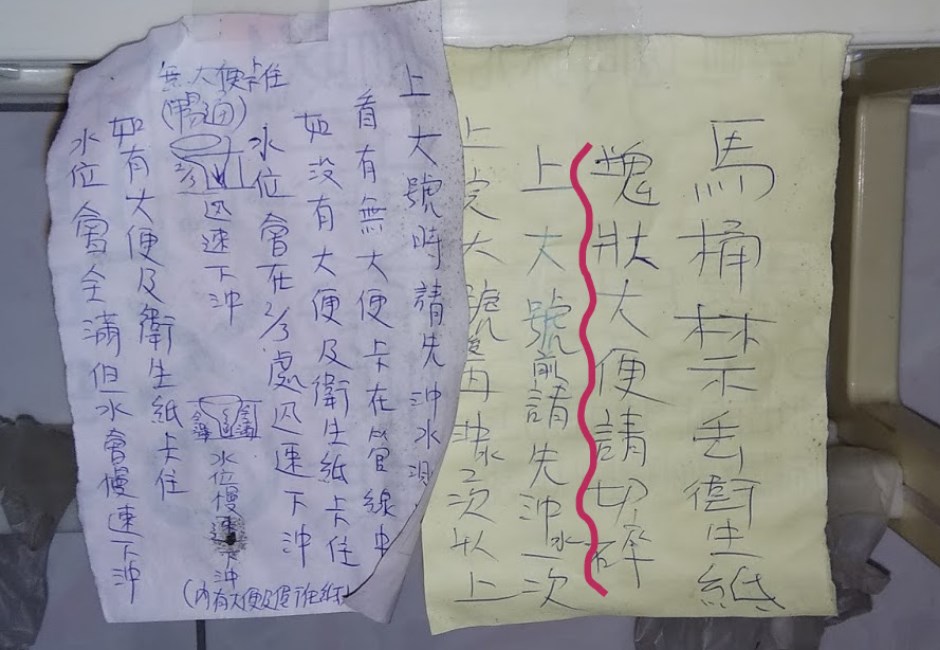 馬桶禁示丟衛生紙
塊狀大便請切碎
上大號前請先沖水一次
上完大號後再沖水2次以上
上大號時請先沖水
看有無大便卡在管線中
如沒有大便及衛生紙卡住
水位會在2/3處迅速下沖
無大便卡住
(暢通)
2/3
迅速下沖
全滿
水位慢速下沖
如有大便及衛生紙卡住
水位會全滿但水會慢速下沖